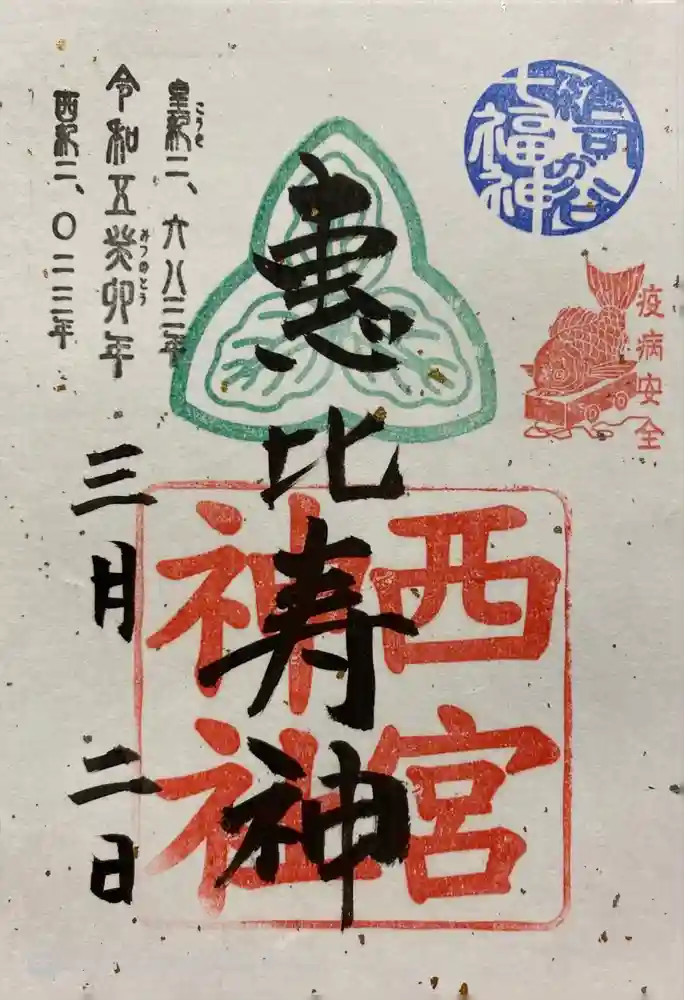 雑司が谷
七福神
疫病安全
恵比寿神
西宮
神社
皇紀二、六八三年
令和五癸卯年
みつのとう
西紀二、〇二三年
三月二日